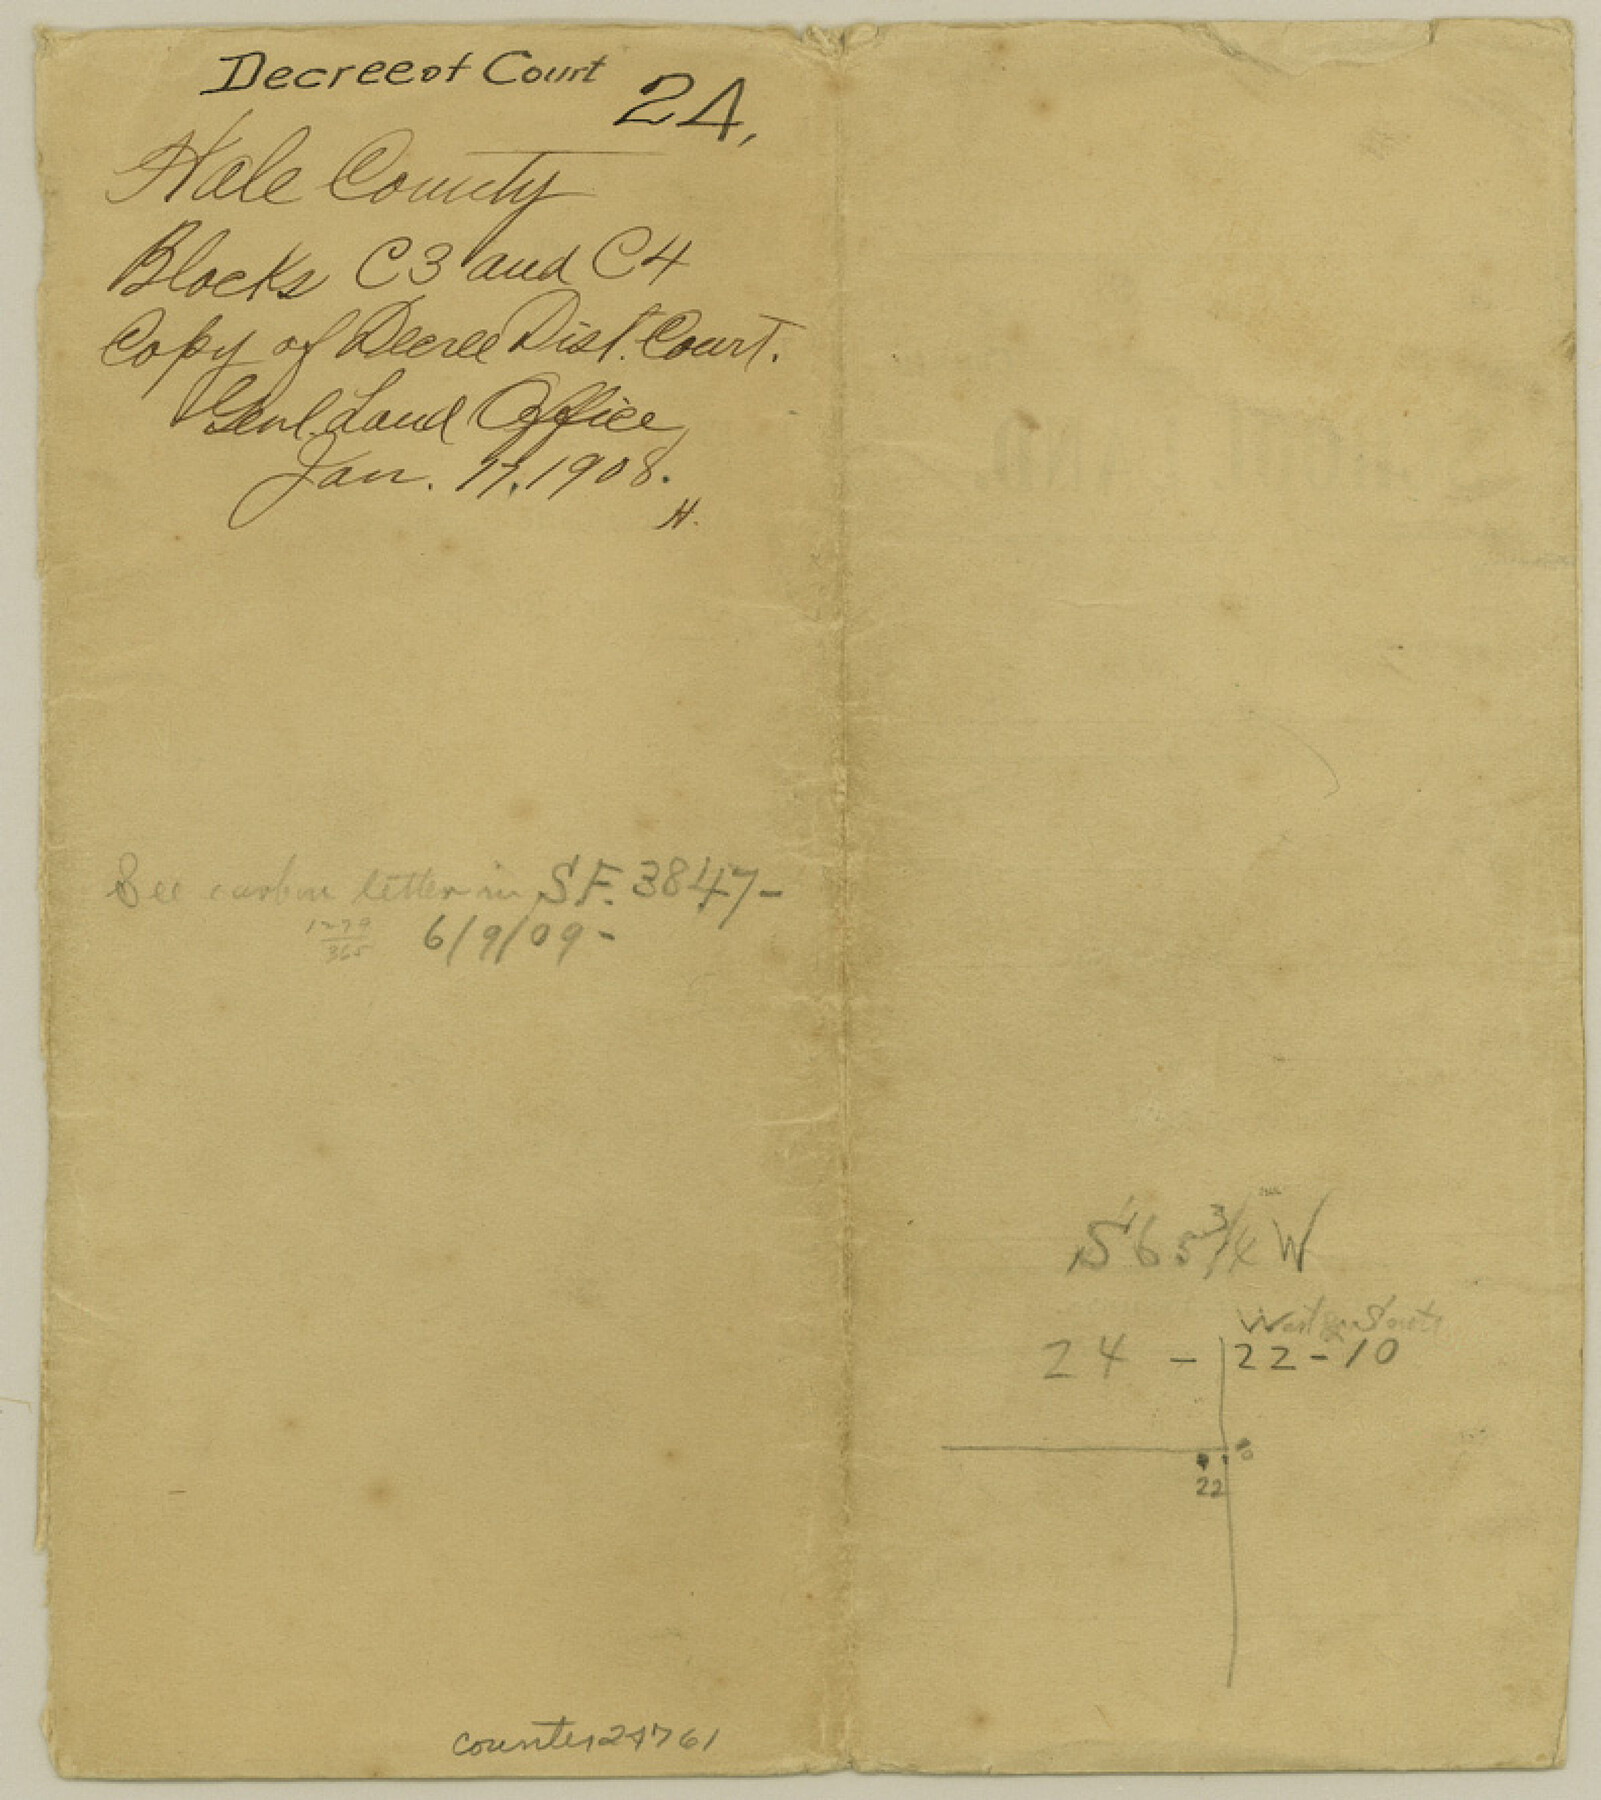 Decree of Court
24,
Hale County
Blocks C3 and C4
Copy of Decree Dist. Court.
Genl. Land Office
Jan. 17, 1908.
H.
See carbon letter in S.F. 3847-
1279
365
6/9/09-
counter 24761
S 65 3/4 W
24 - 22-10
22